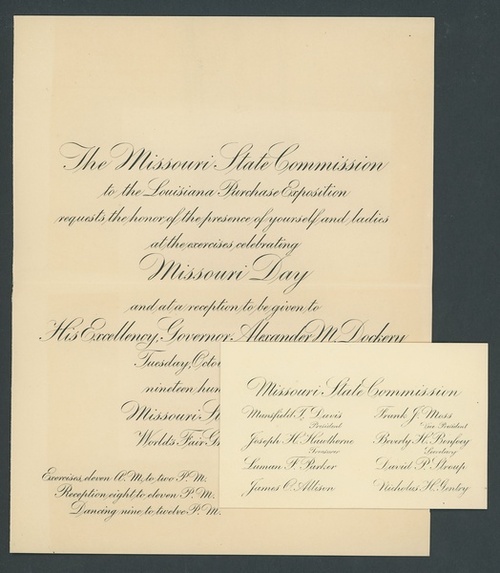 The Missouri State Commission
to the Louisiana Purchase Exposition
requests the honor of the presence of yourself and ladies
at the exercises celebrating
Missouri Day
and at a reception to be given to
His Excellency, Governor Alexander M. Dockery
Tuesday,
nineteen
Missouri
World's Fair
Exercises, eleven A.M. to two P.M.
Reception, eight to eleven P.M.
Dancing nine to twelve P.M.
Missouri State Commission
Mansfield T. Davis
President
Joseph H. Hawthorne
Treasurer
Luman F. Parker
James O. Allison
Frank J. Moss
Vice President
Beverly H. Bonfoey
Secretary
David P. Stroup
Nicholas H. Gentry